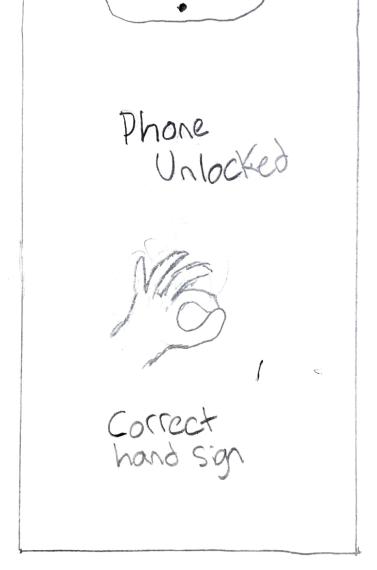 Phone
Unlocked
Correct
hand sign